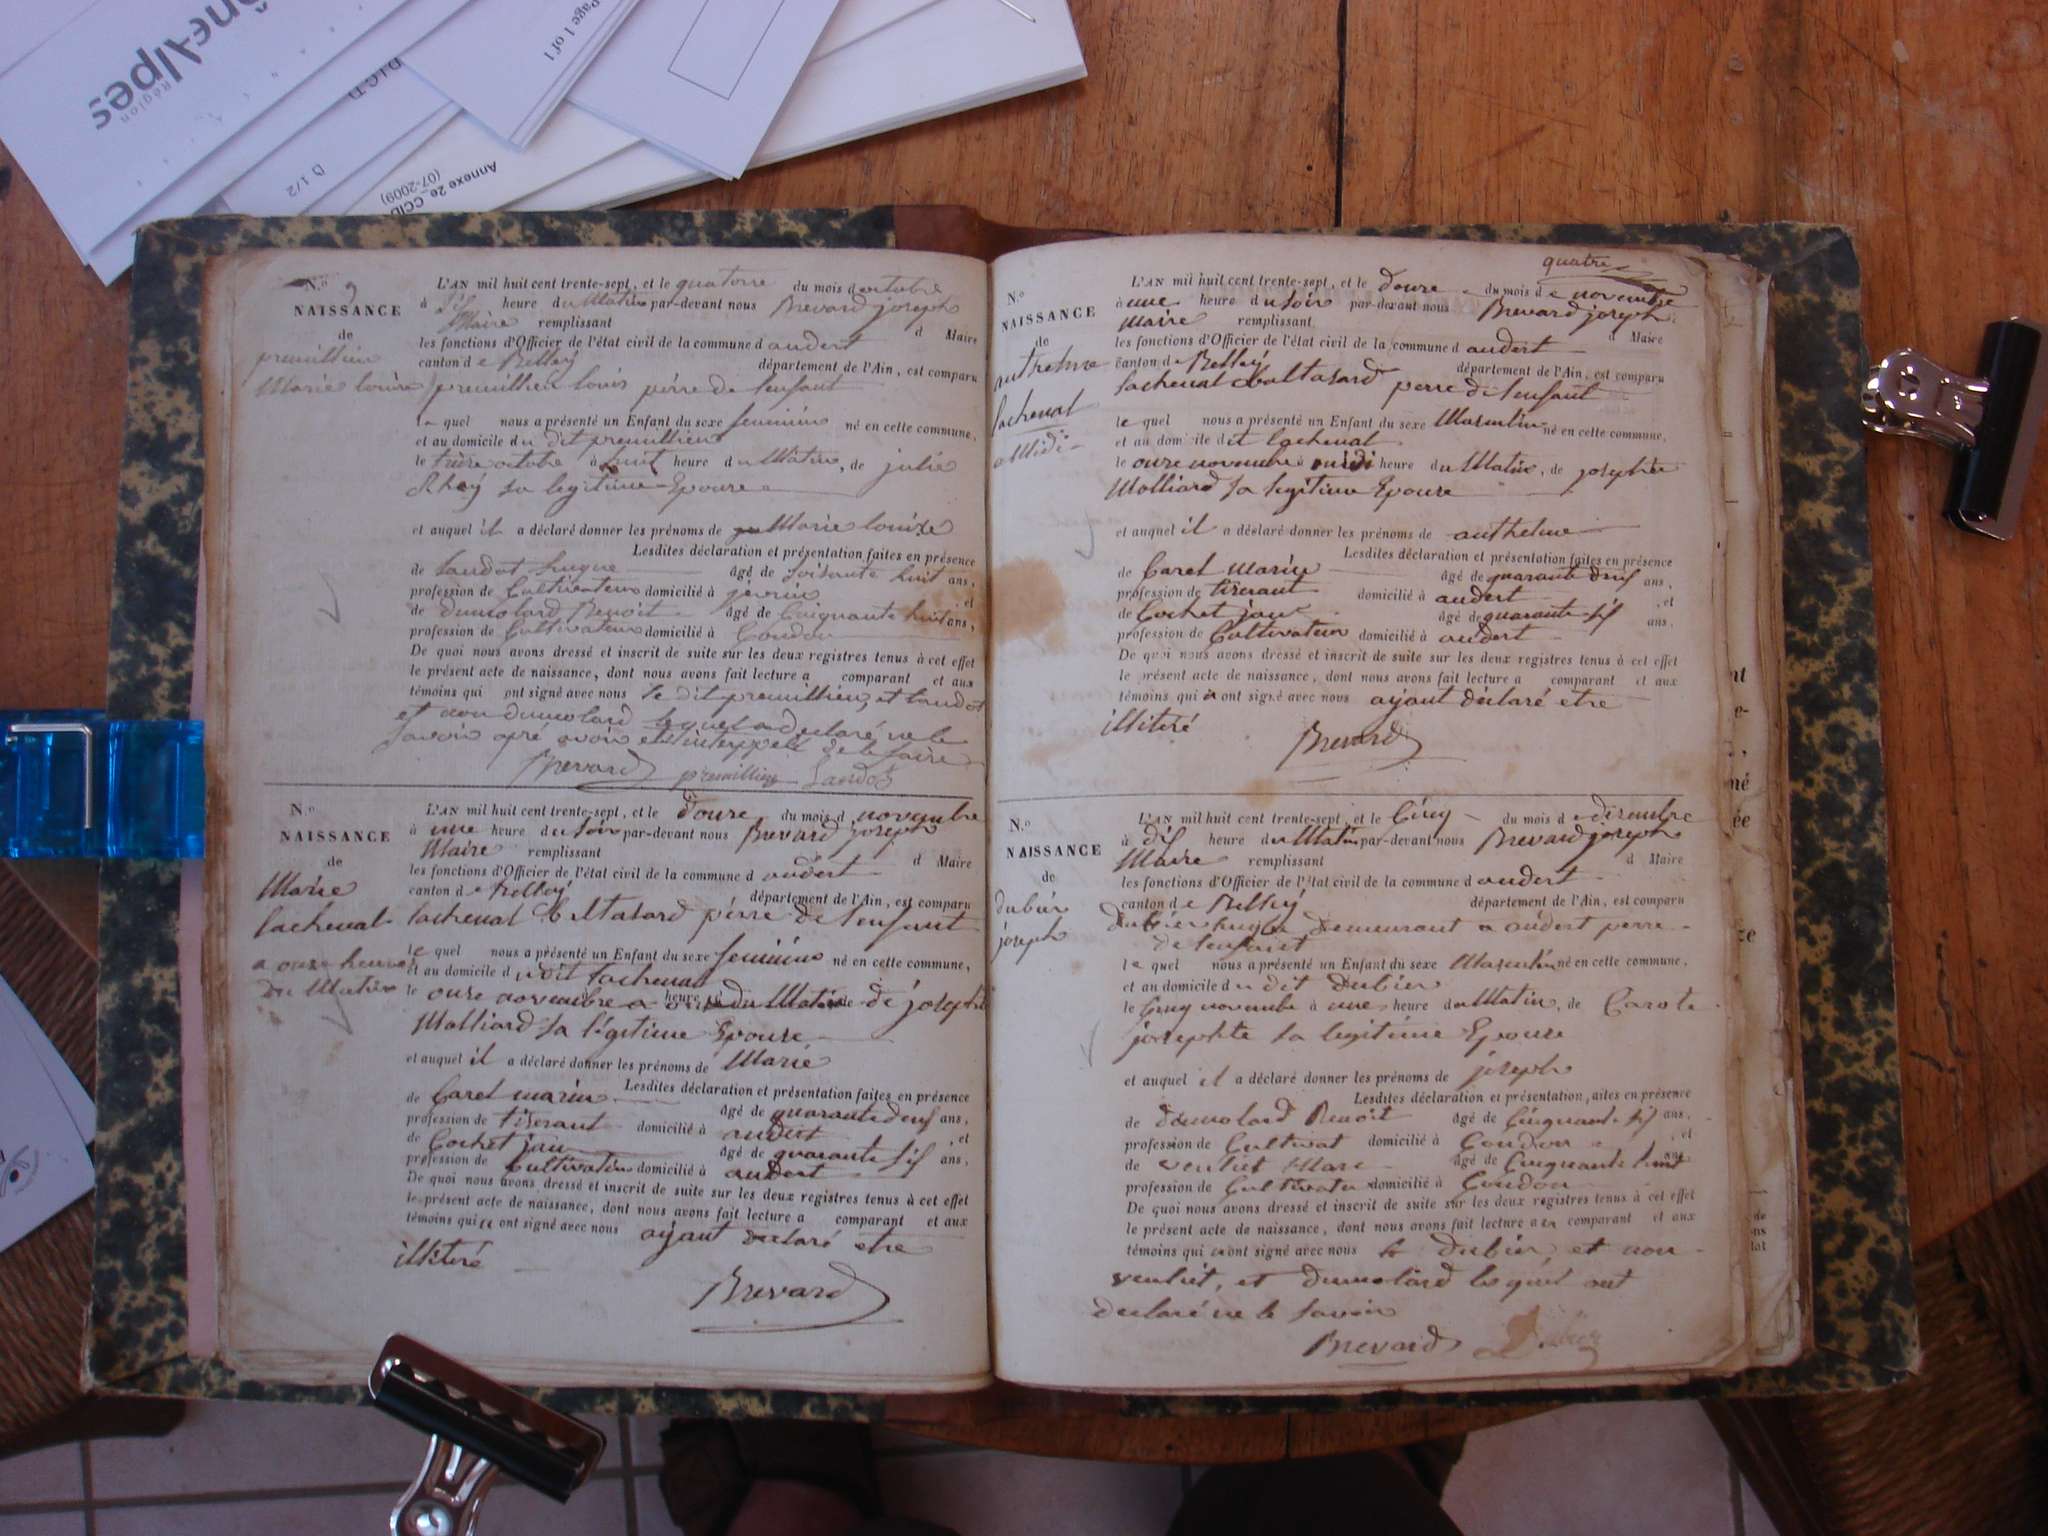 RhôneAlpes
Région
Page 1 of 1
D 1/2
Annexe 2e CCID
(07-2009)
N.º 9
NAISSANCE
de
premillieu
Marie louise
L'AN mil huit cent trente-sept, et le quatorze du mois d octobre
à dix heure du Matin par-devant nous Brevard joseph
Maire remplissant d Maire
les fonctions d'Officier de l'état civil de la commune d andert
canton de Belley département de l'Ain, est comparu
premillieu louis pérre de lenfant
le quel nous a présenté un Enfant du sexe feminin né en cette commune,
et au domicile du dit premillieu
le treize octobre à huit heure du Matin, de julie
Rhey sa legitime Epouse
et auquel il a déclaré donner les prénoms de Marie louise
Lesdites déclaration et présentation faites en présence
de landot hugue âgé de soisante huit ans,
profession de Cultivateur domicilié à et
de dumolard Benoit âgé de Cinquante huit ans,
profession de Cultivateur domicilié à Condon
De quoi nous avons dressé et inscrit de suite sur les deux registres tenus à cet effet
le présent acte de naissance, dont nous avons fait lecture a comparant et aux
témoins qui ont signé avec nous le dit premillieu, et landot
et non dumolard lequel a declaré ne le
savoir apré avoir eté interpelé de le faire
Brevard premillieu Landot
N.º
NAISSANCE
de
Marie
lachenal
a onze heure
du Matin
L'AN mil huit cent trente-sept, et le douze du mois d novembre
à une heure du soir par-devant nous Brevard joseph
Maire remplissant d Maire
les fonctions d'Officier de l'état civil de la commune d andert
canton de Belley département de l'Ain, est comparu
lachenal Baltazard pérre de lenfant
le quel nous a présenté un Enfant du sexe feminin né en cette commune,
et au domicile du dit lachenal
le onze novembre a onze heure du Matin de josephte
Molliard sa légitime Epouse
et auquel il a déclaré donner les prénoms de Marie
Lesdites déclaration et présentation faites en présence
de Carel marin âgé de quarante deux ans,
profession de tiserant domicilié à andert, et
de Cochet jean âgé de quarante six ans,
profession de Cultivateur domicilié à andert
De quoi nous avons dressé et inscrit de suite sur les deux registres tenus à cet effet
le présent acte de naissance, dont nous avons fait lecture a comparant et aux
témoins qui n ont signé avec nous ayant declaré etre
illiteré
Brevard
quatre
N.º
NAISSANCE
de
anthelme
lachenal
a Midi
L'AN mil huit cent trente-sept, et le douze du mois de novembre
à une heure du soir par-devant nous Brevard joseph
Maire remplissant d Maire
les fonctions d'Officier de l'état civil de la commune d andert
canton de Belley département de l'Ain, est comparu
lachenal Baltasard perre de lenfant
le quel nous a présenté un Enfant du sexe Masculin né en cette commune,
et au domicile dit lachenal
le onze novembre à midi heure du Matin, de josephte
Molliard sa legitime Epouse
et auquel il a déclaré donner les prénoms de anthelme
Lesdites déclaration et présentation faites en présence
de Carel marin âgé de quarante deux ans,
profession de tiserant domicilié à andert, et
de Cochet jean âgé de quarante six ans,
profession de Cultivateur domicilié à andert
De quoi nous avons dressé et inscrit de suite sur les deux registres tenus à cet effet
le présent acte de naissance, dont nous avons fait lecture a comparant et aux
témoins qui n ont signé avec nous ayant déclaré etre
illiteré
Brevard
N.º
NAISSANCE
de
dubier
joseph
L'AN mil huit cent trente-sept, et le Cinq du mois de disembre
à dix heure du Matin par-devant nous Brevard joseph
Maire remplissant d Maire
les fonctions d'Officier de l'état civil de la commune d andert
canton de Belley département de l'Ain, est comparu
dubier hugue demeurant a andert perre
de lenfant
le quel nous a présenté un Enfant du sexe Masculin né en cette commune,
et au domicile du dit dubier
le Cinq novembre à une heure du Matin, de Carote
josephte sa legitime Epouse
et auquel il a déclaré donner les prénoms de joseph
Lesdites déclaration et présentation, aites en présence
de dumolard Benoit âgé de Cinquante six ans,
profession de Cultivat domicilié à Condon, et
de ventiet Marc âgé de Cinquante huit ans
profession de Cultivateu domicilié à Condon
De quoi nous avons dressé et inscrit de suite sur les deux registres tenus à cet effet
le présent acte de naissance, dont nous avons fait lecture a comparant et aux
témoins qui ont signé avec nous le dubier et non
ventiet, et dumolard les quel ont
declaré ne le savoir
Brevard Dubier